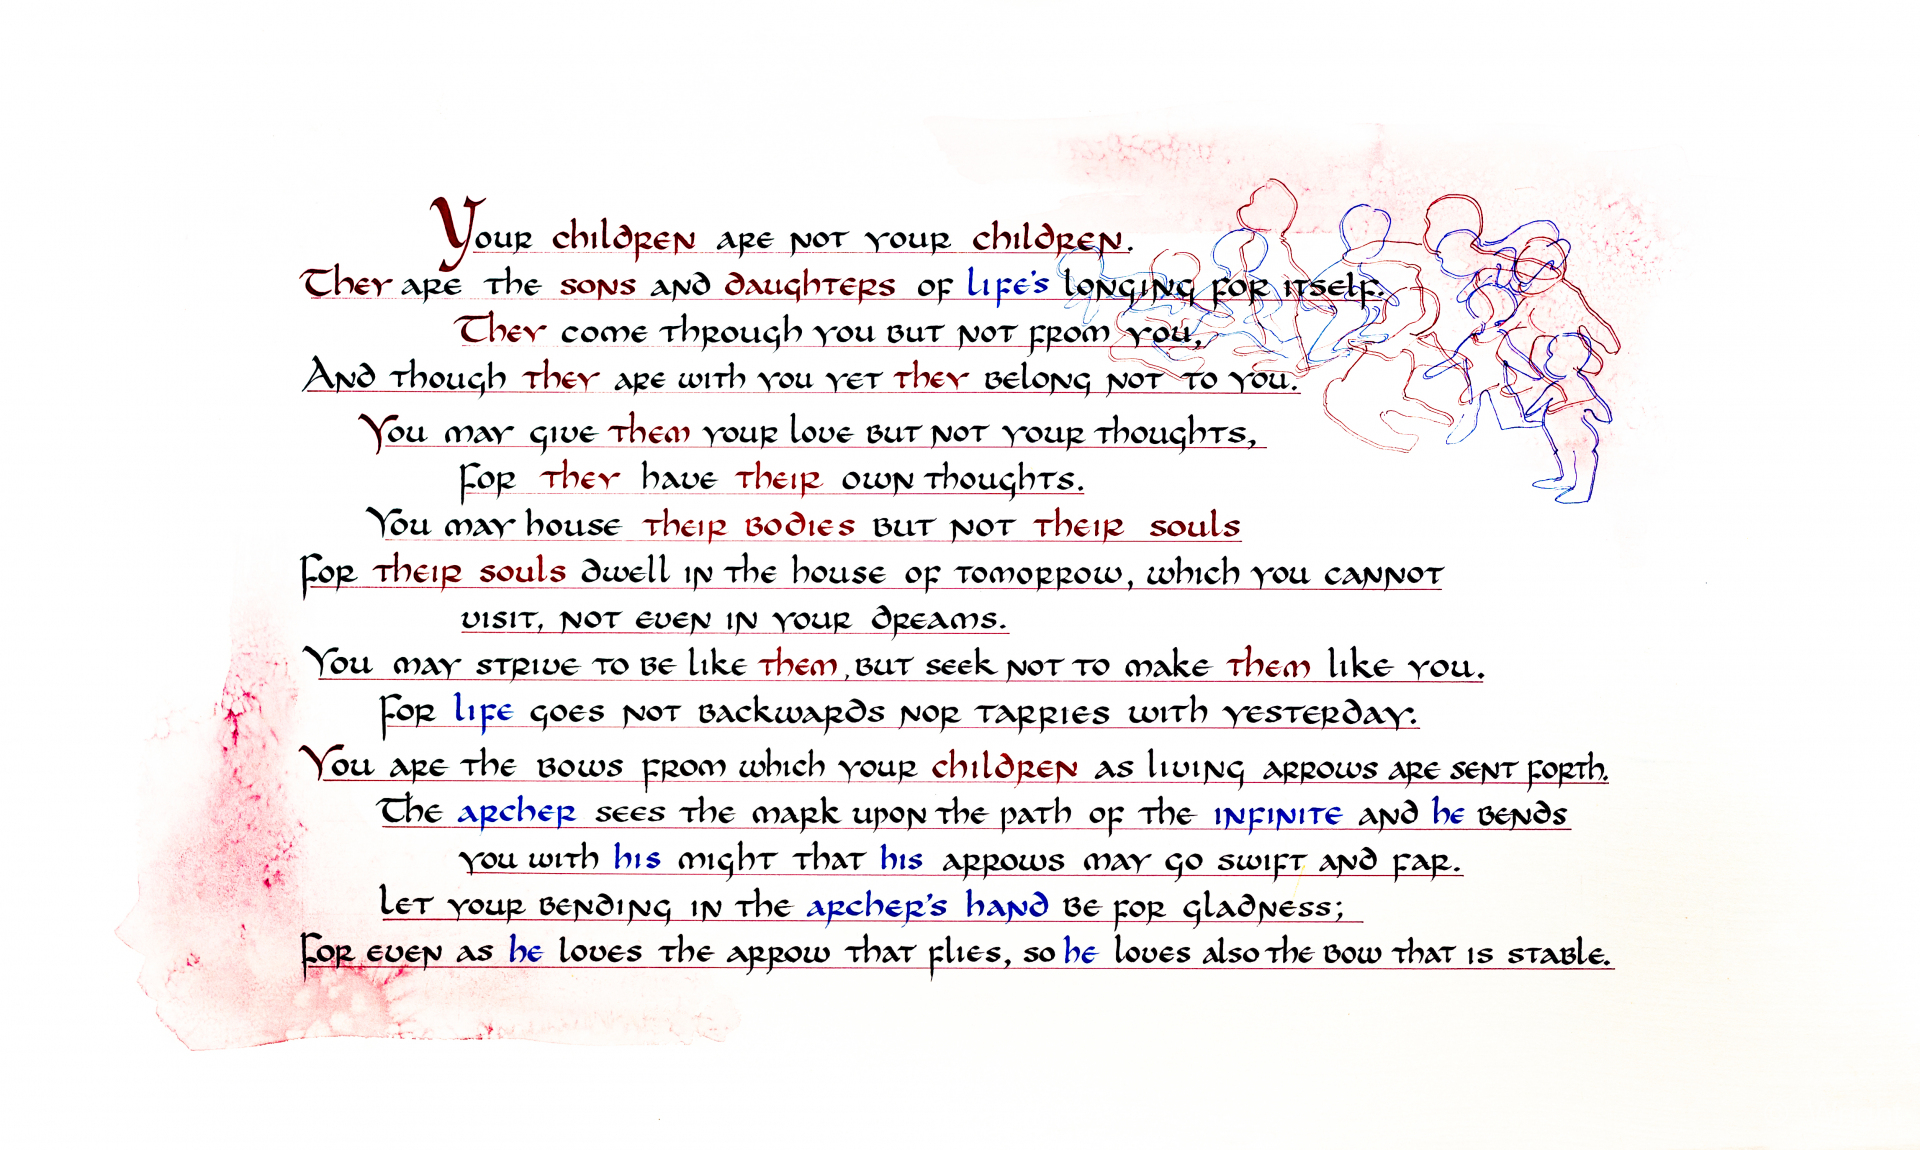 Your children are not your children.
They are the sons and daughters of life's longing for itself.
They come through you but not from you,
And though they are with you yet they belong not to you.
You may give them your love but not your thoughts,
For they have their own thoughts.
You may house their bodies but not their souls
For their souls dwell in the house of tomorrow, which you cannot
visit, not even in your dreams.
You may strive to be like them, but seek not to make them like you.
For life goes not backwards nor tarries with yesterday.
You are the bows from which your children as living arrows are sent forth.
The archer sees the mark upon the path of the infinite and he bends
you with his might that his arrows may go swift and far.
Let your bending in the archer's hand be for gladness;
For even as he loves the arrow that flies, so he loves also the bow that is stable.